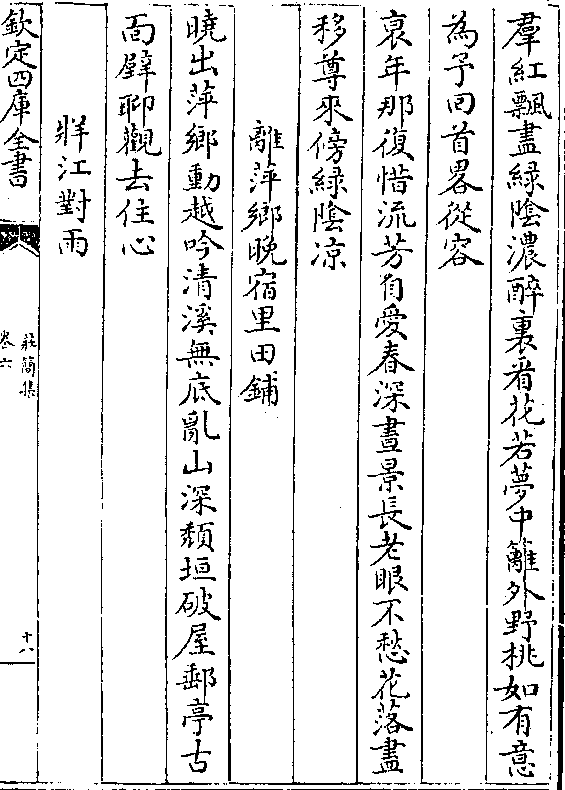 羣紅飄盡緑陰濃醉裏看花若夢中籬外野桃如有意
為予回首畧從容
衰年那復惜流芳自愛春深晝景長老眼不愁花落盡
移尊來傍緑陰凉
離萍鄉晚宿里田鋪
曉出萍鄉動越吟清溪無底亂山深頽垣破屋郵亭古
面壁聊觀去住心
牂江對雨
欽定四庫全書
莊簡集
卷六
十八